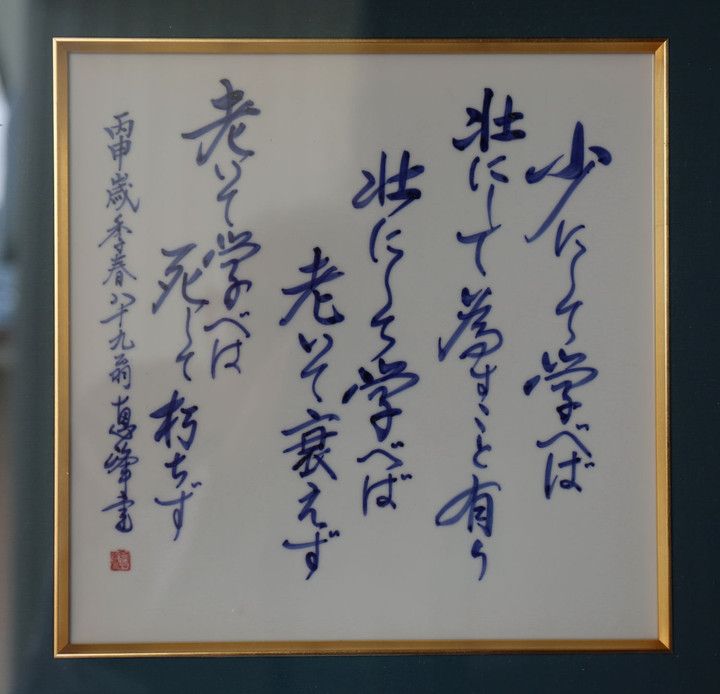 少にして学べば
壮にして為すこと有り
壮にして学べば
老いて衰えず
老いて学べば
死して朽ちず
丙申歳季春八十九翁恵峰書